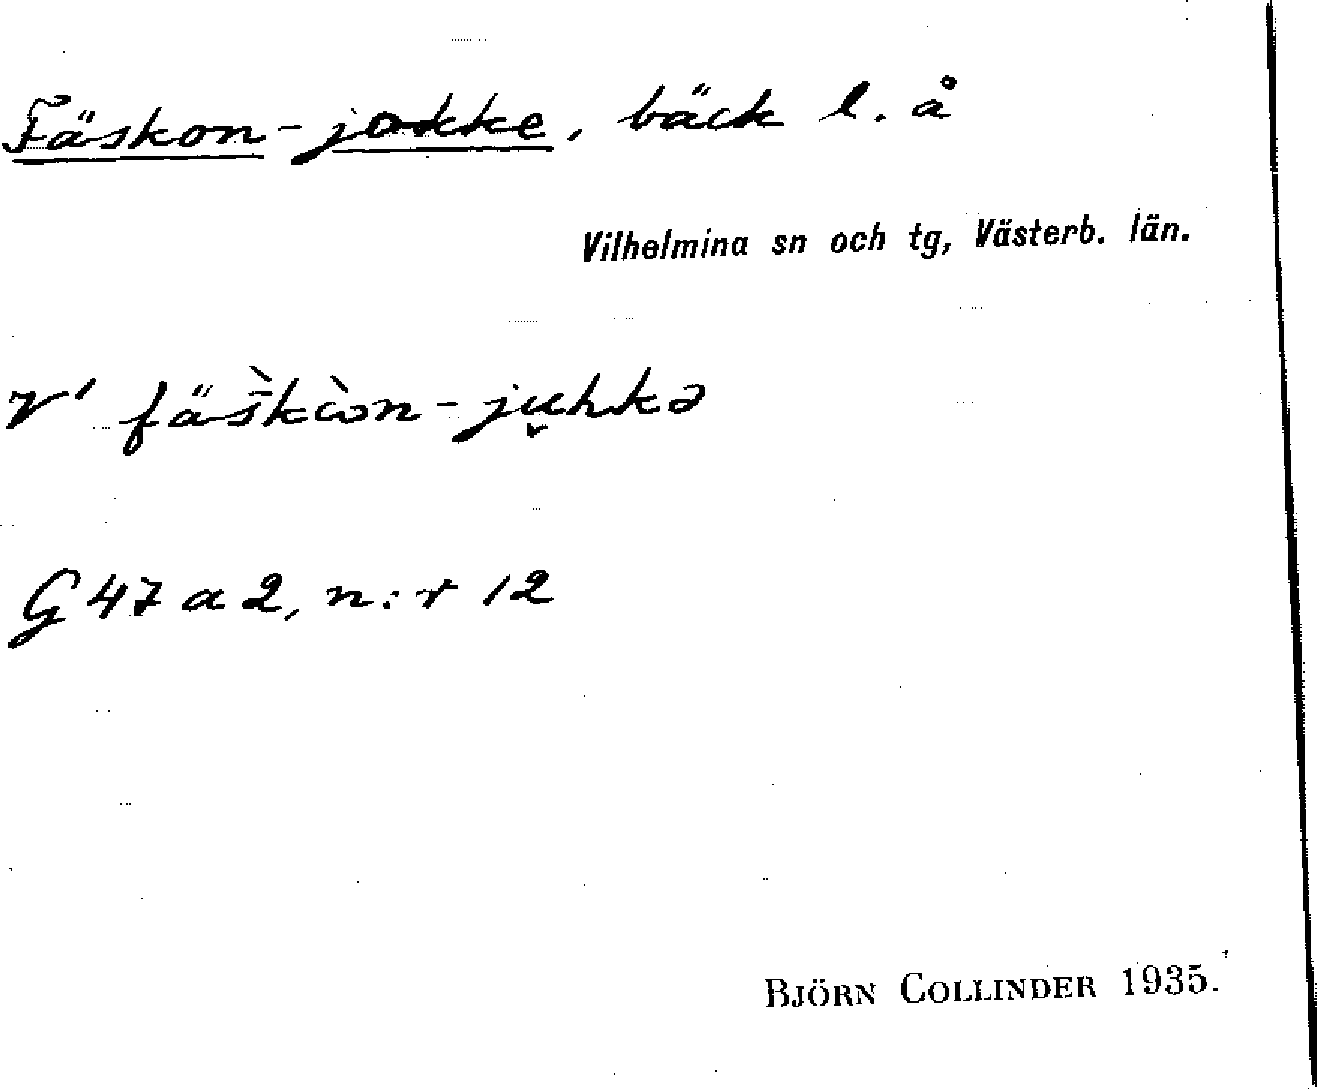 Fäskon-jokke, bäck l. å
Vilhelmina sn och tg, Västerb. län.
V' fäškòn-jụhkə
G 47 a 2, n:r 12
BJÖRN COLLINDER 1935.